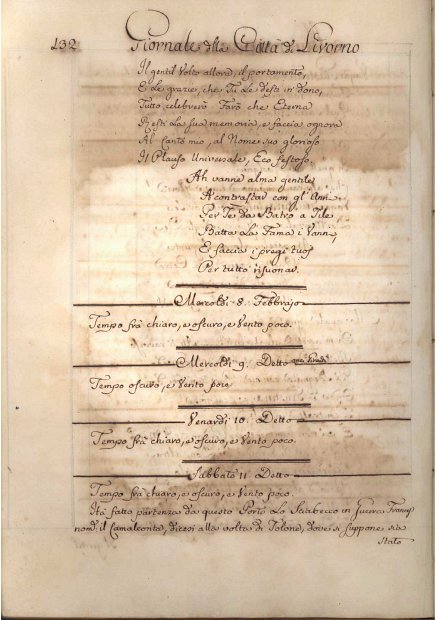 132 Giornale della Città di Livorno
Il gentil Volto allora, il portamento,
E Le grazie, che Tu Le desti in dono,
Tutto celebrerò Farò che Eterna
Resti La sua memoria, e faccia ognora
Al Canto mio, al Nome suo glorioso
Il Plauso Universale, Eco festoso.
Ah vanne alma gentile
A contrastar con gl'Anni
Per Te da Batro a Tile
Batta La Fama i Vanni,
E faccia i pregi tuoi
Per tutto risuonar.
Mercoldi 8. Febbrajo
Tempo frà chiaro, e oscuro, e Vento poco.
Mercoldi 9. Detto
Tempo oscuro, e Vento poco
Venardi 10. Detto
Tempo frà chiaro, e oscuro, e Vento poco.
Sabbato 11. Detto
Tempo frà chiaro, e oscuro, e Vento poco.
Ità fatto partenza da questo Porto Lo Sciabecco in Guerra
nom. il Camaleonte, dicesi alla volta di Tolone, dove si suppone sia
stato